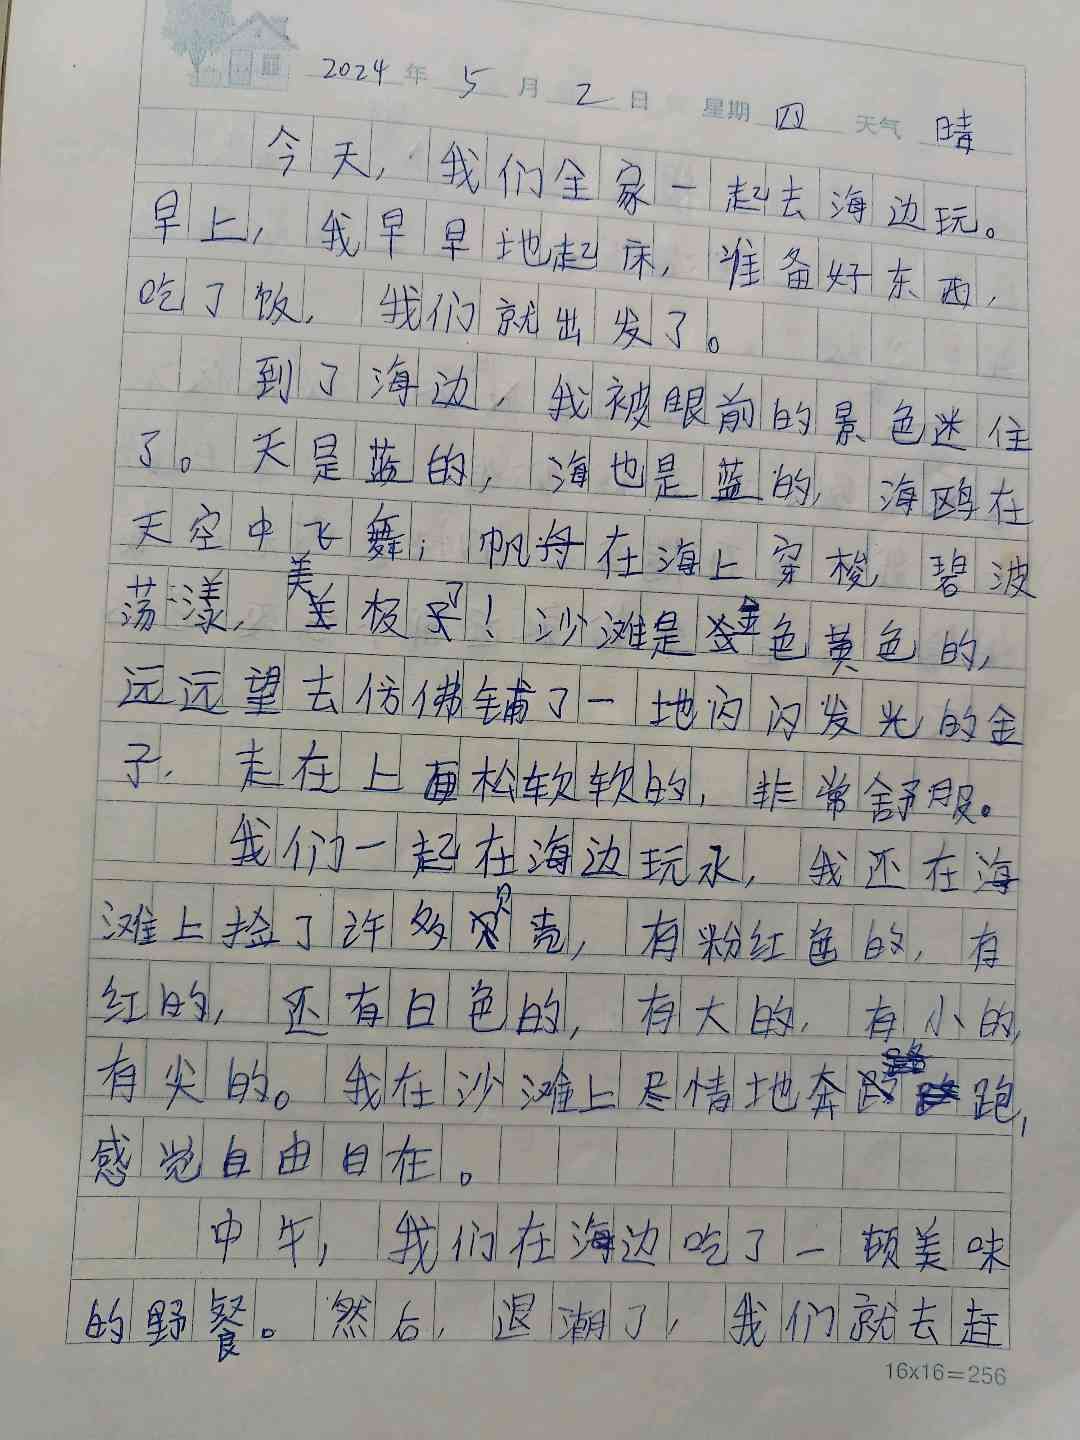 2024年5月2日 星期四 天气晴
今天，我们全家一起去海边玩。
早上，我早早地起床，准备好东西，
吃了饭，我们就出发了。
到了海边，我被眼前的景色迷住
了。天是蓝的，海也是蓝的，海鸥在
天空中飞舞；帆舟在海上穿梭，碧波
荡漾，美极了！沙滩是金色黄色的，
远远望去仿佛铺了一地闪闪发光的金
子，走在上面松软软的，非常舒服。
我们一起在海边玩水，我还在海
滩上捡了许多贝壳，有粉红色的，有
红的，还有白色的，有大的，有小的，
有尖的。我在沙滩上尽情地奔跑，
感觉自由自在。
中午，我们在海边吃了一顿美味
的野餐。然后，退潮了，我们就去赶
16x16=256